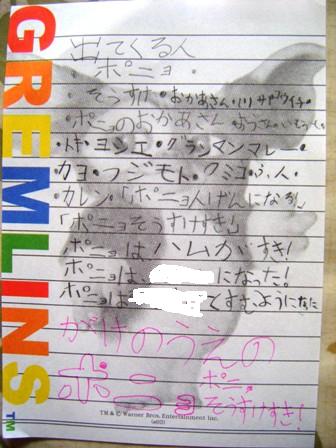 GREMLINS™
出てくる人
・ポニョ・
・そうすけ・おかあさん・リサ・コウイチ・
・ポニョのおかあさん
・トキ・ヨシエ・グランマンマレー・
カヨ・フジモト・クミコ・ふ人・
・カレン・「ポニョ人げんになる!」
「ポニョそうすけすき!」
ポニョはハムがすき!
ポニョは、 になった!
ポニョは
がけのうえの
ポニョ
ポニョ
そうすけすき!
TM & © Warner Bros. Entertainment Inc.
(s02)